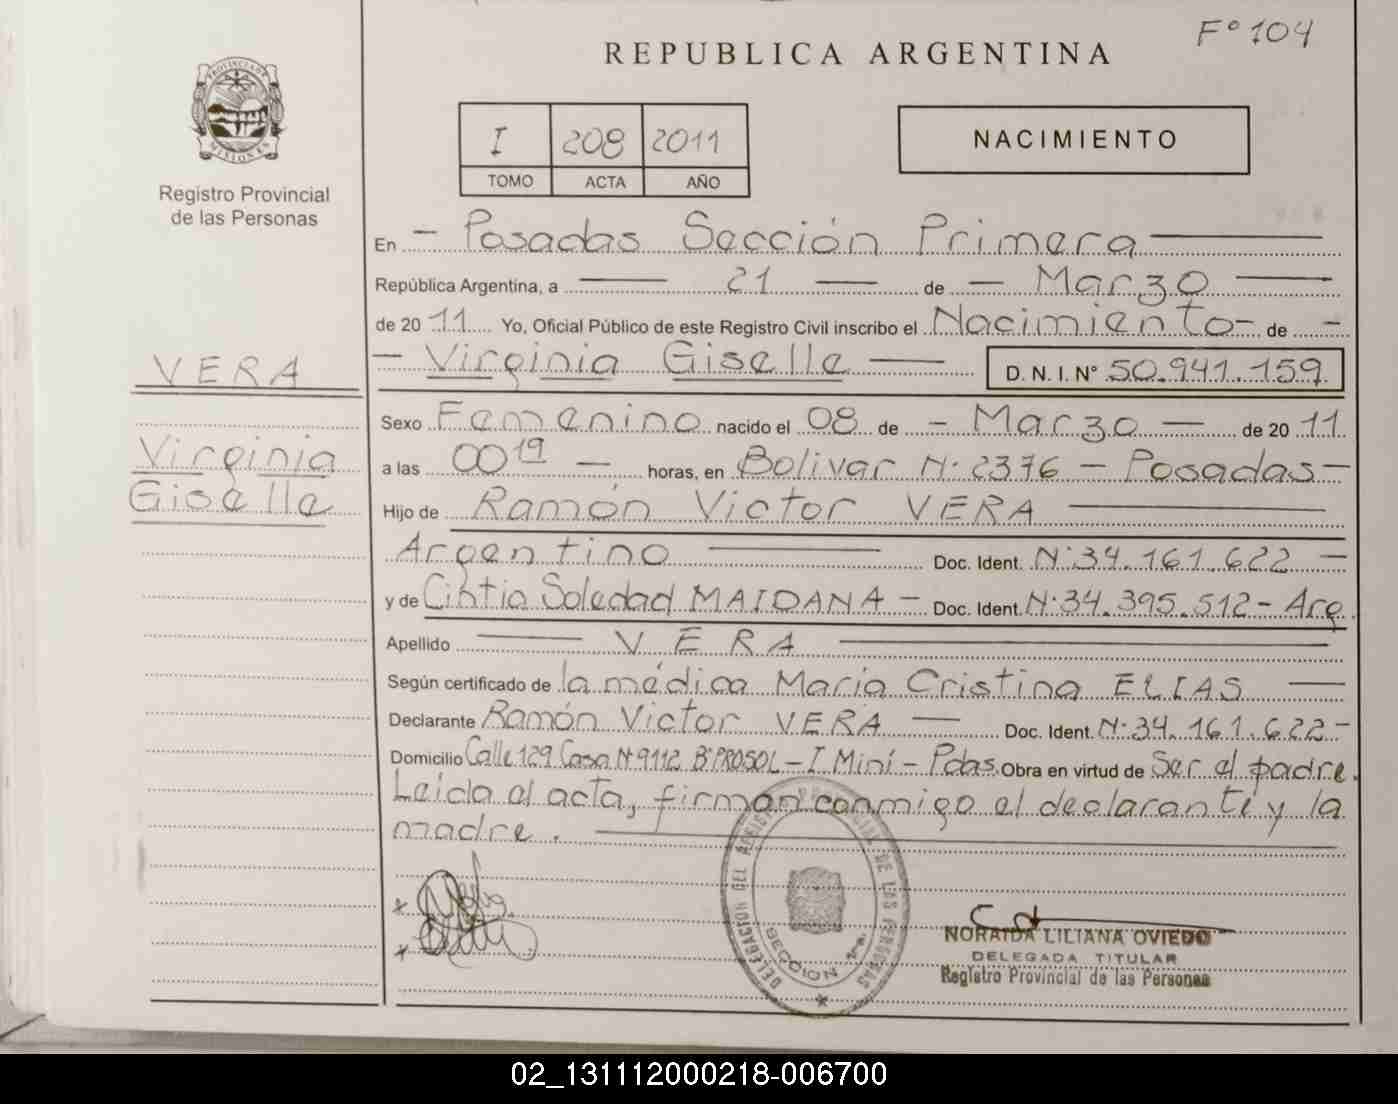 Fº 104
REPUBLICA ARGENTINA
PROVINCIA DE
MISIONES
Registro Provincial
de las Personas
I 208 2011
TOMO ACTA AÑO
NACIMIENTO
En - Posadas Sección Primera
República Argentina, a 21 de - Marzo
de 2011 Yo, Oficial Público de este Registro Civil inscribo el Nacimiento- de -
- Virginia Giselle D. N. I. Nº 50.941.159
VERA
Virginia
Giselle
Sexo Femenino nacido el 08 de - Marzo - de 2011
a las 00 19 - horas, en Bolivar N. 2376 - Posadas -
Hijo de Ramón Victor VERA
Argentino Doc. Ident. Nº 34.161.622 -
y de Cintia Soledad MAIDANA - Doc. Ident. Nº 34.395.512 - Arg.
Apellido VERA
Según certificado de la médica María Cristina ELIAS
Declarante Ramón Victor VERA - Doc. Ident. Nº 34.161.622 -
Domicilio Calle 129 Casa Nº 9112 Bº PROSOL - I Miní - Pdas. Obra en virtud de Ser el padre.
Leída el acta, firman conmigo el declarante y la
madre.
DELEGACION DEL REGISTRO PROVINCIAL DE LAS PERSONAS
SECCION 1ra.
NORAIDA LILIANA OVIEDO
DELEGADA TITULAR
Registro Provincial de las Personas
02_131112000218-006700